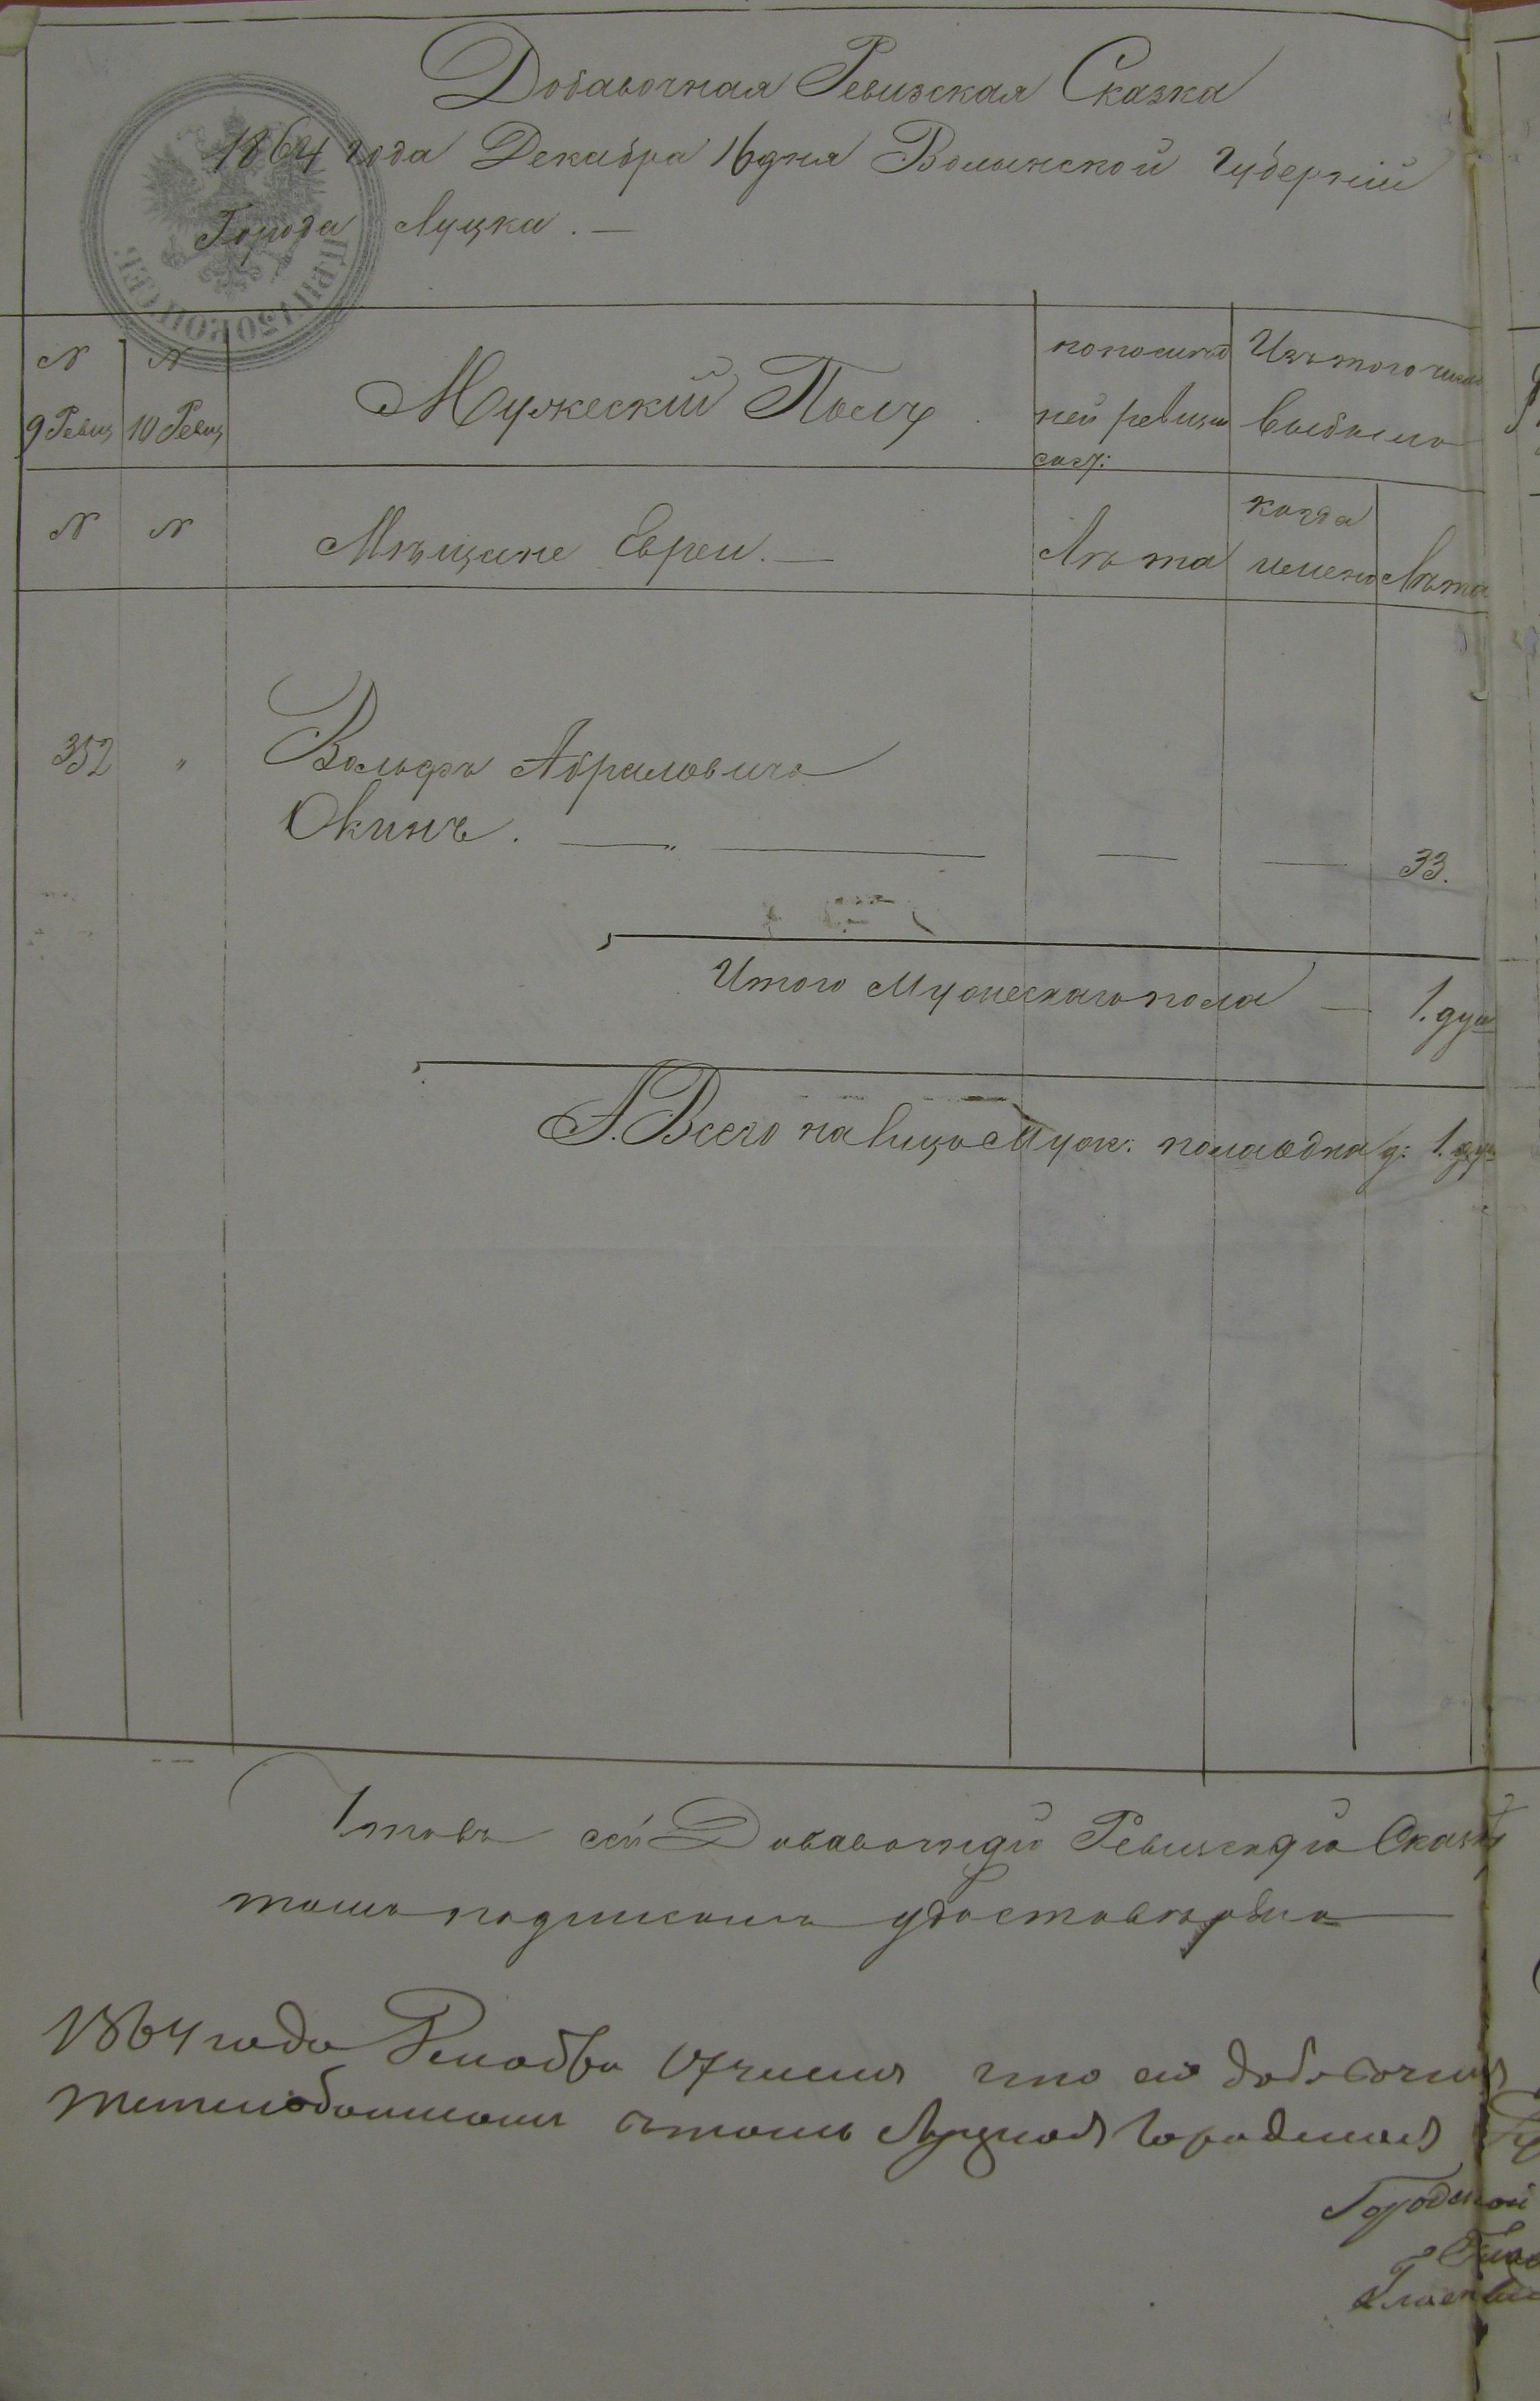 Добавочная Ревизская Сказка
1864 года Декабря 16 дня Волынской Губерніи
Города Луцка. —
N
9 Ревиз
N
10 Ревиз
Мужескій Полъ
по послѣд
ней ревизіи
сост:
Изъ того числа
выбыло
N
N
Мѣщане Евреи. —
Лѣта
когда
именно
Лѣта
352
"
Вольфъ Абрамовичъ
Окинъ. — " — — — 33.
Итого Мужескаго пола — 1. душ
А. Всего на лицо Муж: пола одна д: 1. душ
сей Добавочной Ревизской Сказки
подписомъ удостовѣряю
1864 года Декабря 17 числа что сія добавочная
Луцкая Городская
Городской